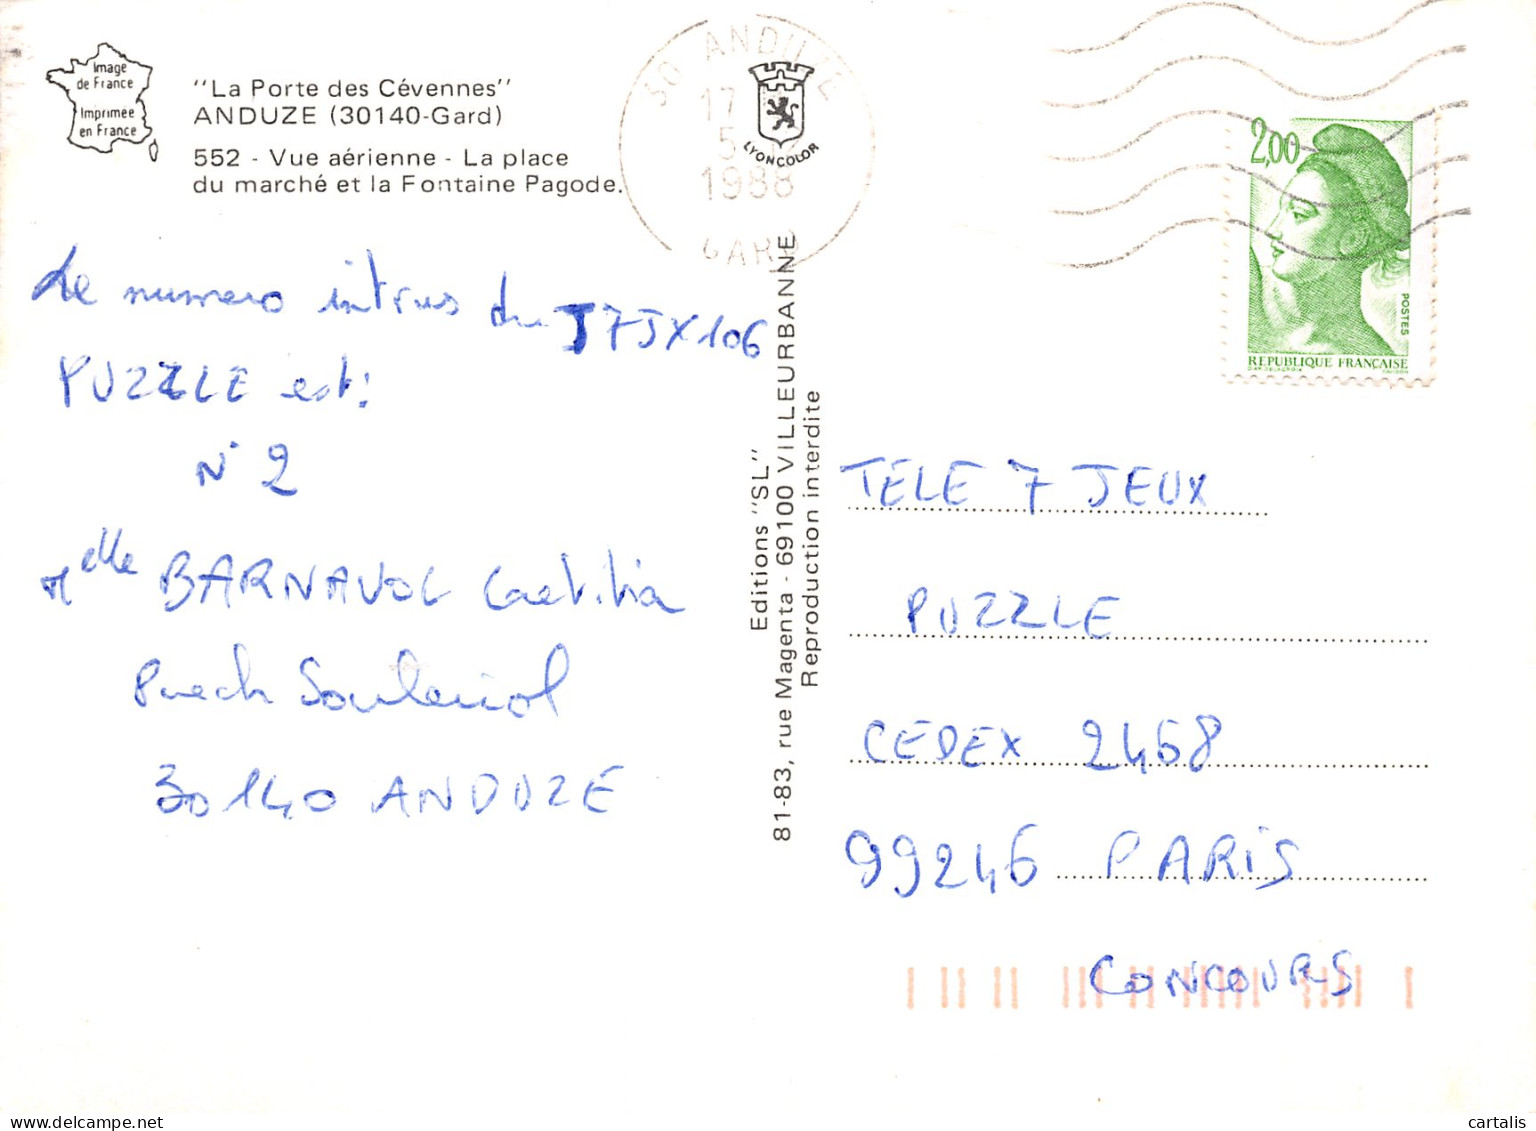 Image
de France
Imprimée
en France
"La Porte des Cévennes"
ANDUZE (30140-Gard)
552 - Vue aérienne - La place
du marché et la Fontaine Pagode.
ANDUZE
17
5
1988
GARD
LYONCOLOR
2,00
POSTES
REPUBLIQUE FRANÇAISE
Le numero intrus du T7JX106
PUZZLE est:
N° 2
Melle BARNAVOL Laetitia
Puech Souleriol
30140 ANDUZE
Editions "SL"
81-83, rue Magenta - 69100 VILLEURBANNE
Reproduction interdite
TELE 7 JEUX
PUZZLE
CEDEX 2468
99246 PARIS
CONCOURS
cartalis